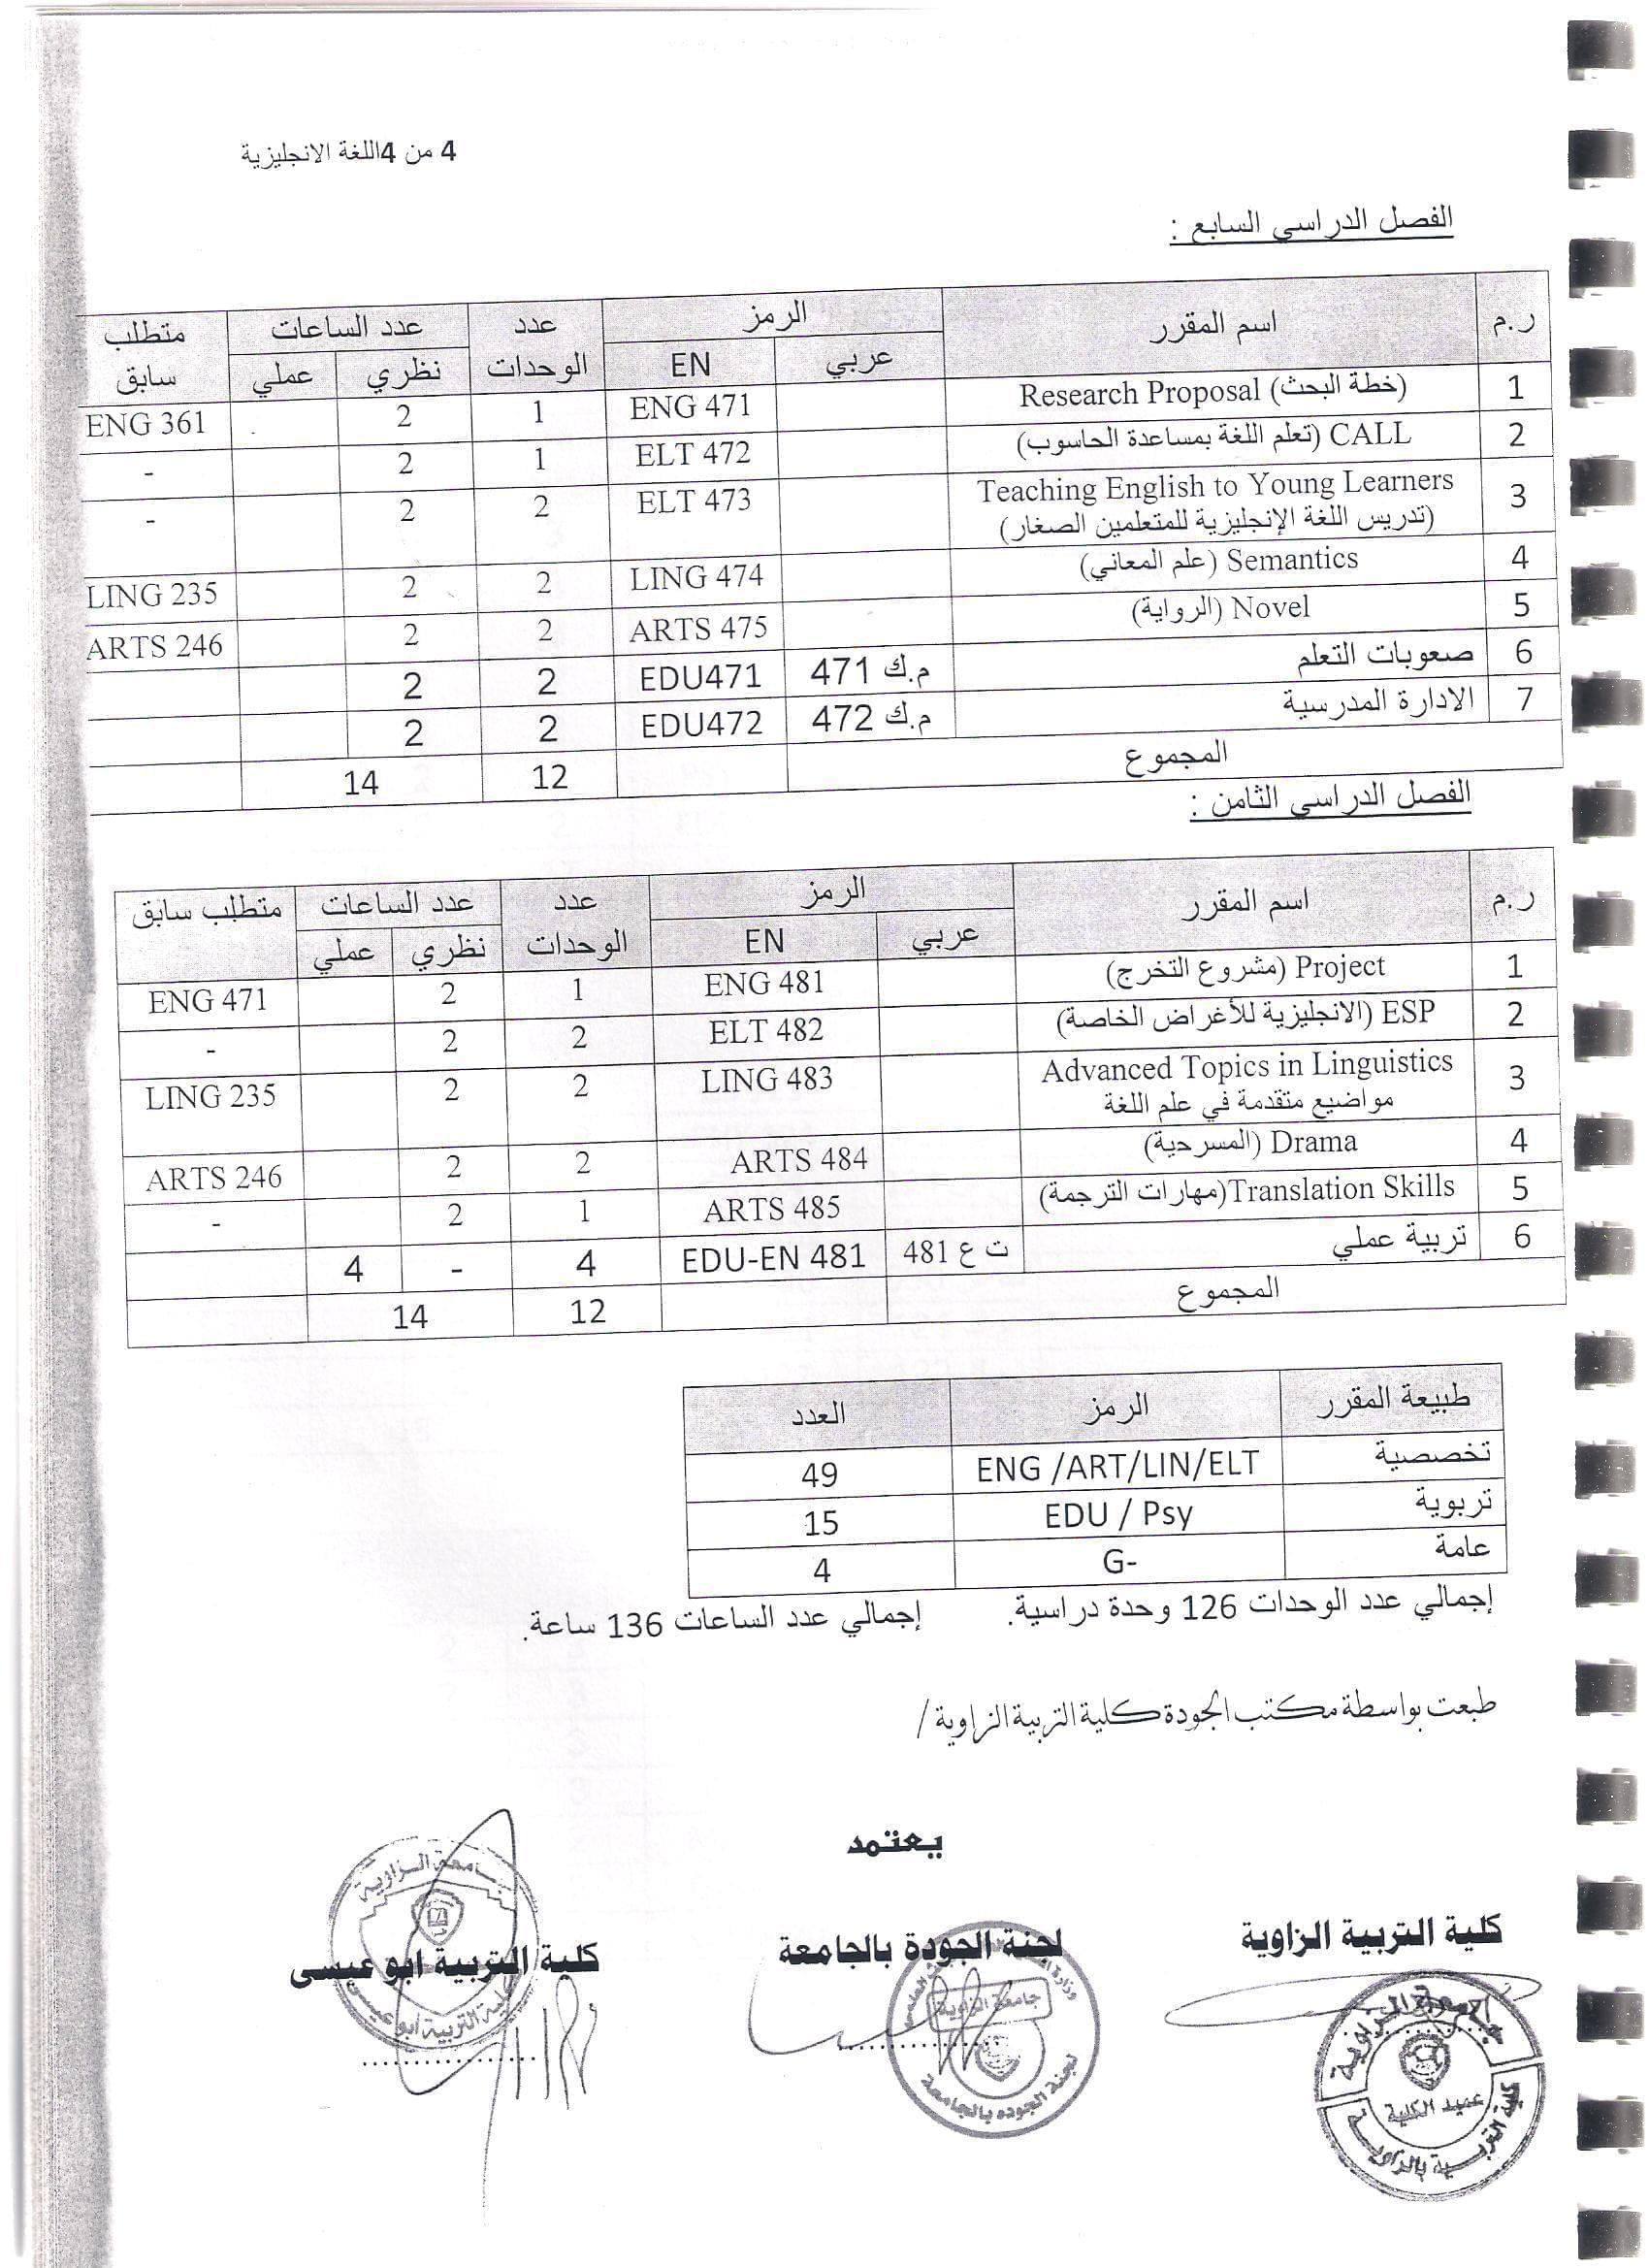 4 من 4اللغة الانجليزية
الفصل الدراسي السابع :
ر.م اسم المقرر الرمز عدد الوحدات عدد الساعات متطلب سابق
عربي EN نظري عملي
1 Research Proposal (خطة البحث) ENG 471 1 2 ENG 361
2 CALL (تعلم اللغة بمساعدة الحاسوب) ELT 472 1 2 -
3 Teaching English to Young Learners ELT 473 2 2 -
(تدريس اللغة الإنجليزية للمتعلمين الصغار)
4 Semantics (علم المعاني) LING 474 2 2 LING 235
5 Novel (الرواية) ARTS 475 2 2 ARTS 246
6 صعوبات التعلم م.ك 471 EDU471 2 2
7 الادارة المدرسية م.ك 472 EDU472 2 2
المجموع 12 14
الفصل الدراسي الثامن :
ر.م اسم المقرر الرمز عدد الوحدات عدد الساعات متطلب سابق
عربي EN نظري عملي
1 Project (مشروع التخرج) ENG 481 1 2 ENG 471
2 ESP (الانجليزية للأغراض الخاصة) ELT 482 2 2 -
3 Advanced Topics in Linguistics LING 483 2 2 LING 235
مواضيع متقدمة في علم اللغة
4 Drama (المسرحية) ARTS 484 2 2 ARTS 246
5 Translation Skills(مهارات الترجمة) ARTS 485 1 2 -
6 تربية عملي ت ع 481 EDU-EN 481 4 - 4
المجموع 12 14
طبيعة المقرر الرمز العدد
تخصصية ENG /ART/LIN/ELT 49
تربوية EDU / Psy 15
عامة G- 4
إجمالي عدد الوحدات 126 وحدة دراسية. إجمالي عدد الساعات 136 ساعة.
طبعت بواسطة مكتب الجودة كلية التربية الزاوية /
يعتمد
كلية التربية الزاوية لجنة الجودة بالجامعة كلية التربية ابو عيسى
جامعة الزاوية
عميد الكلية
كلية التربية بالزاوية
جامعة الزاوية
لجنة الجودة بالجامعة
جامعة الزاوية
كلية التربية ابو عيسى